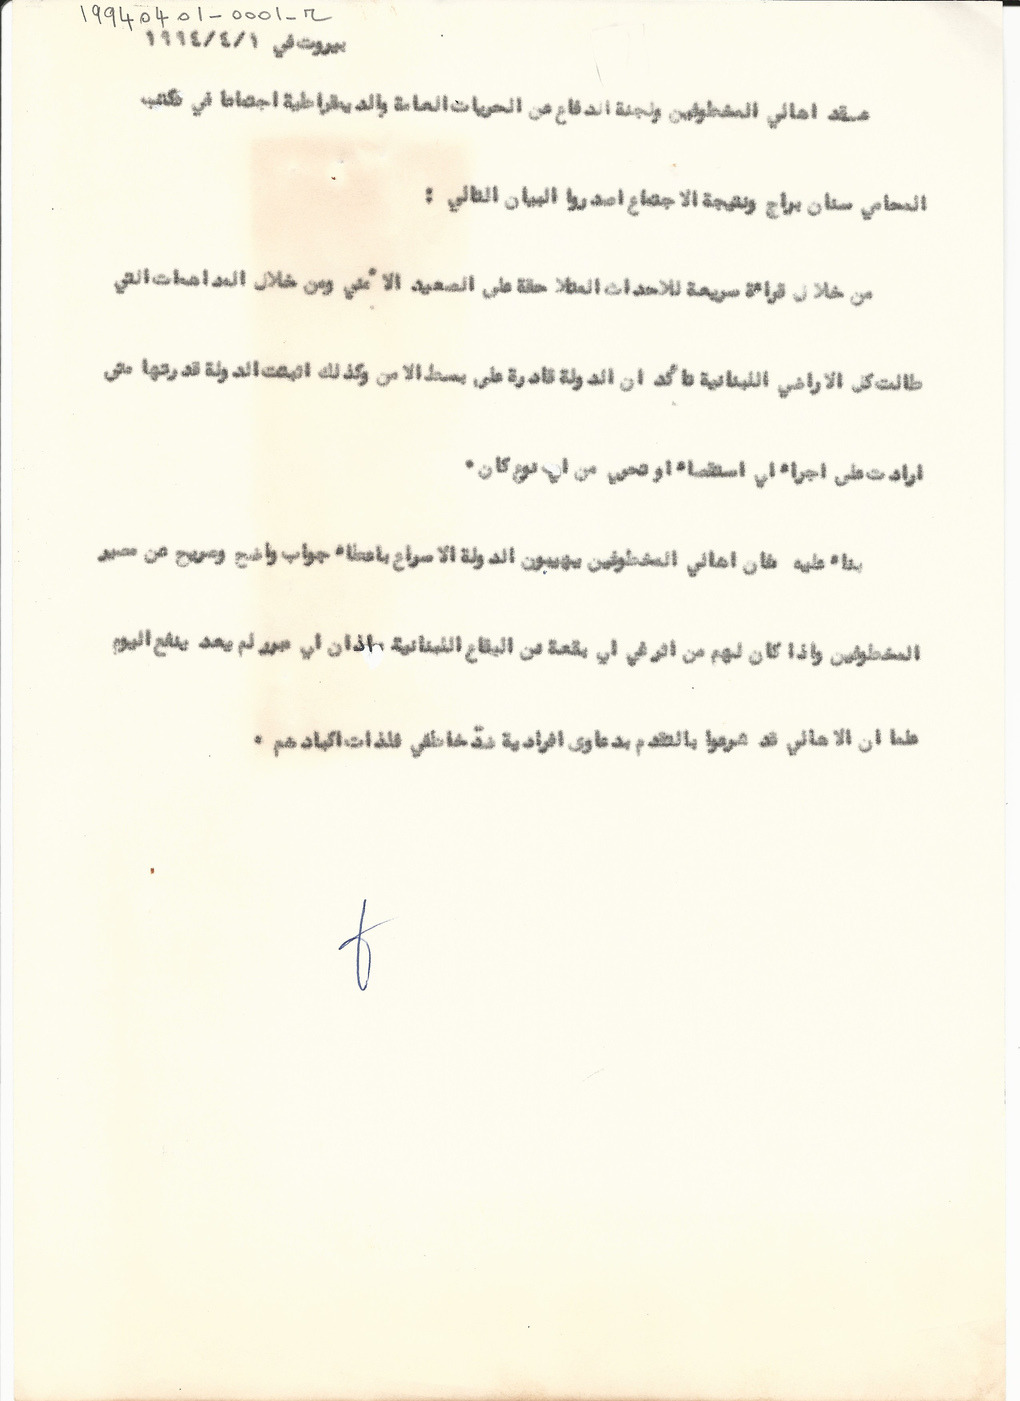 19940401-0001-r
بيروت في ١/٤/١٩٩٤
عقد اهالي المخطوفين ولجنة الدفاع عن الحريات العامة والديمقراطية اجتماعا في مكتب
المحامي سنان براج ونتيجة الاجتماع اصدروا البيان التالي :
من خلال قراءة سريعة للاحداث المتلاحقة على الصعيد الأمني ومن خلال المداهمات التي
طالت كل الاراضي اللبنانية تأكد ان الدولة قادرة على بسط الامن وكذلك اثبتت الدولة قدرتها متى
ارادت على اجراء اي استقصاء او تحري من اي نوع كان .
بناء عليه فان اهالي المخطوفين يهيبون الدولة الاسراع باعطاء جواب واضح وصريح عن مصير
المخطوفين واذا كان لهم من اثر في اي بقعة من البقاع اللبنانية ، اذ ان اي مبرر لم يعد ينفع اليوم
علما ان الاهالي قد شرعوا بالتقدم بدعاوى افرادية ضدّ خاطفي فلذات اكبادهم .